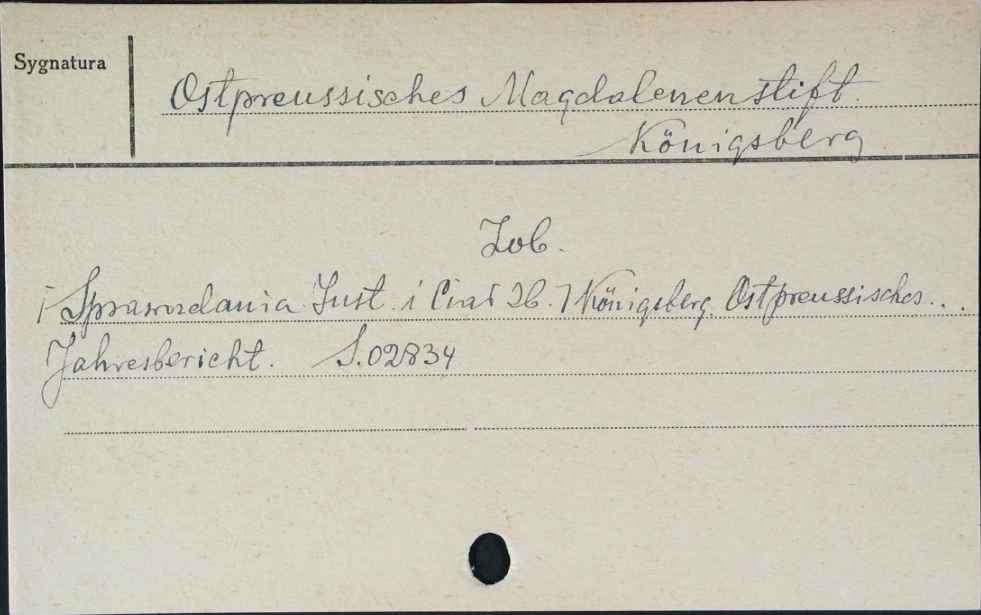 Sygnatura
Ostpreussisches Magdalenenstift.
Königsberg
Zob.
[Sprawozdania Inst. i Ciał Zb.] Königsberg. Ostpreussisches...
Jahresbericht. S.02834